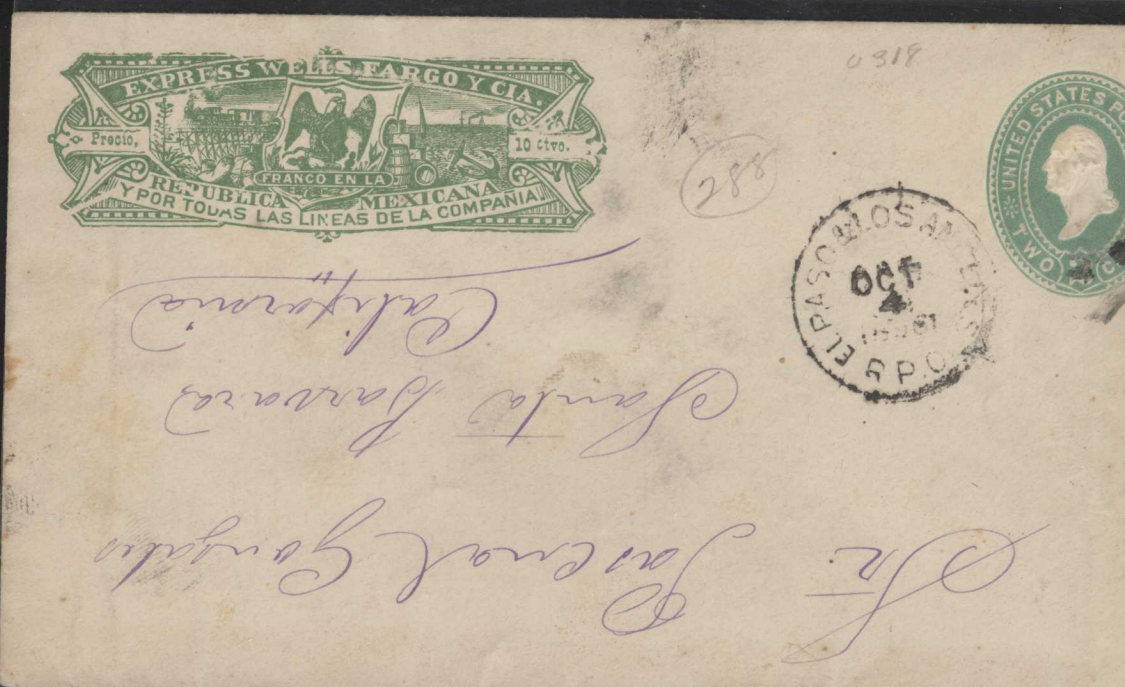 0318
EXPRESS WELLS FARGO Y CIA.
Precio, 10 Ctvo.
FRANCO EN LA
REPUBLICA MEXICANA
Y POR TODAS LAS LINEAS DE LA COMPAÑIA.
288
UNITED STATES
TWO
EL PASO & LOS ANGELES
OCT
4
R.P.O.
Sr Pascual Gonzales
Santa Barvara
California